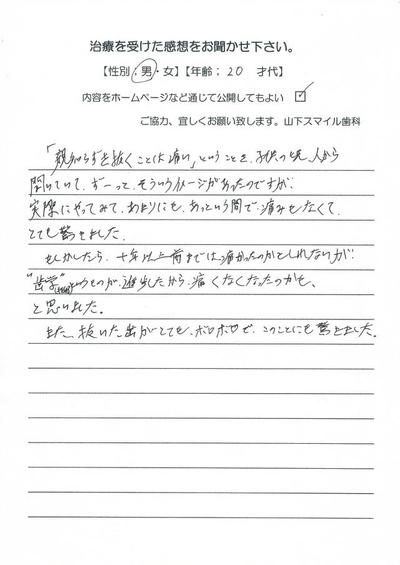 治療を受けた感想をお聞かせ下さい。
【性別:男・女】【年齢:20 才代】
内容をホームページなど通じて公開してもよい ☑
ご協力、宜しくお願い致します。山下スマイル歯科
「親知らずを抜くことは痛い」ということを、子供の頃、人から
聞いていて、ずーっと、そういうイメージがあったのですが、
実際にやってみて、あまりにも、あっという間で、痛みもなくて、
とても驚きました。
もしかしたら、十年以上前までは痛かったのかもしれないが、
"歯学"というものが、進歩したから、痛くなくなったのかな、
と思いました。
また、抜いた歯がとても、ボロボロで、このことにも驚きました。